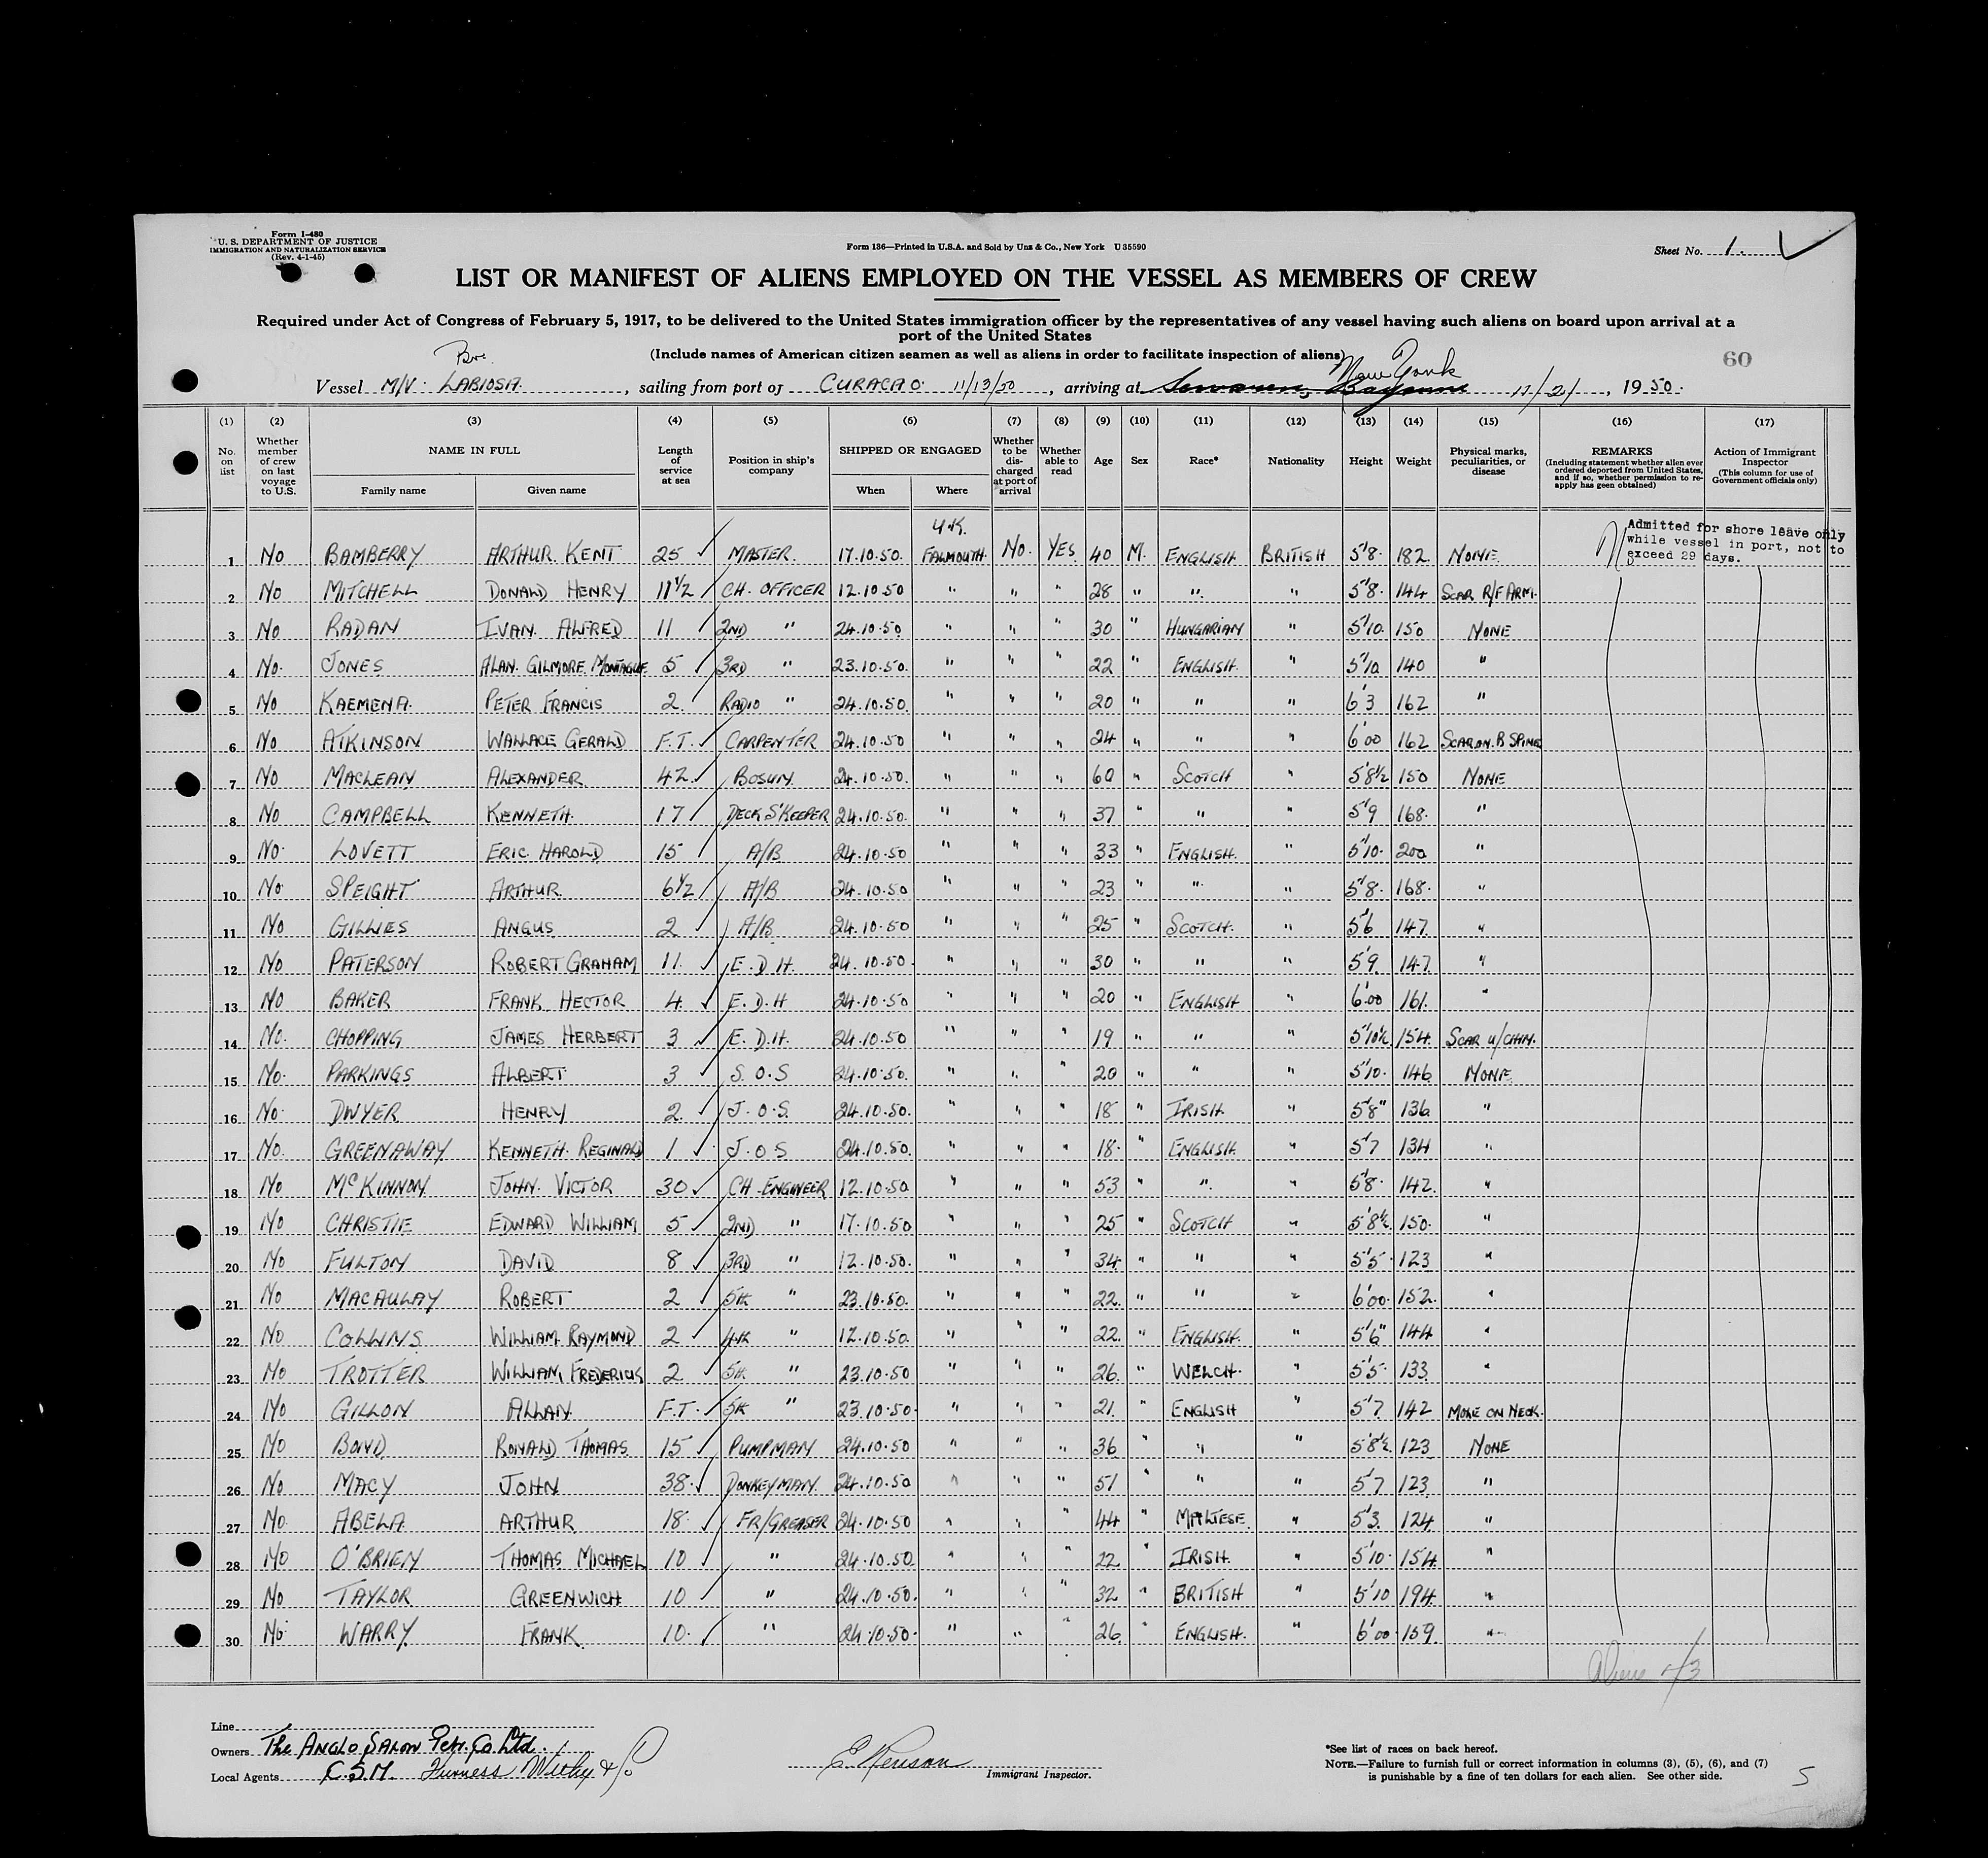 Form I-480
U. S. DEPARTMENT OF JUSTICE
IMMIGRATION AND NATURALIZATION SERVICE
(Rev. 4-1-45)
Form 136—Printed in U.S.A. and Sold by Unz & Co., New York U 35590
Sheet No. 1.
LIST OR MANIFEST OF ALIENS EMPLOYED ON THE VESSEL AS MEMBERS OF CREW
Required under Act of Congress of February 5, 1917, to be delivered to the United States immigration officer by the representatives of any vessel having such aliens on board upon arrival at a
port of the United States
(Include names of American citizen seamen as well as aliens in order to facilitate inspection of aliens)
60
Br.
New York
Vessel M/V. LABIOSA. , sailing from port of CURACAO. 11/13/50 , arriving at Sewaren, Bayonne 11/21 , 1950.
(1) (2) (3) (4) (5) (6) (7) (8) (9) (10) (11) (12) (13) (14) (15) (16) (17)
No. on list
Whether member of crew on last voyage to U.S.
NAME IN FULL
Family name
Given name
Length of service at sea
Position in ship's company
SHIPPED OR ENGAGED
When
Where
Whether to be discharged at port of arrival
Whether able to read
Age
Sex
Race*
Nationality
Height
Weight
Physical marks, peculiarities, or disease
REMARKS
(Including statement whether alien ever ordered deported from United States, and if so, whether permission to reapply has geen obtained)
Action of Immigrant Inspector
(This column for use of Government officials only)
Admitted for shore leave only
while vessel in port, not to
exceed 29 days.
U.K.
1 No BAMBERRY ARTHUR KENT 25 MASTER. 17.10.50. FALMOUTH. No. YES. 40 M. ENGLISH BRITISH 5'8. 182. NONE.
2 No MITCHELL DONALD HENRY 11½ CH. OFFICER 12.10.50 " " " 28 " " " 5'8. 144 SCAR R/F ARM.
3 No RADAN IVAN ALFRED 11 2ND " 24.10.50. " " " 30 " HUNGARIAN " 5'10. 150 NONE
4 No. JONES ALAN GILMORE MONTAGUE 5 3RD " 23.10.50. " " " 22 " ENGLISH. " 5'10. 140 "
5 No KAEMENA. PETER FRANCIS 2. RADIO " 24.10.50. " " " 20 " " " 6'3 162 "
6 No ATKINSON WALLACE GERALD F.T. CARPENTER 24.10.50 " " " 24 " " " 6'00 162 SCAR ON B SPINE
7 No MACLEAN ALEXANDER 42 BOSUN. 24.10.50. " " " 60 " SCOTCH " 5'8½ 150 NONE
8 No CAMPBELL KENNETH. 17 DECK S'KEEPER 24.10.50. " " " 37 " " " 5'9 168. "
9 No. LOVETT ERIC HAROLD 15 A/B 24.10.50 " " " 33 " ENGLISH. " 5'10. 200 "
10 No SPEIGHT ARTHUR. 6½ A/B 24.10.50 " " " 23 " " " 5'8. 168. "
11 No GILLIES ANGUS 2 A/B 24.10.50 " " " 25 " SCOTCH. " 5'6 147. "
12 No PATERSON ROBERT GRAHAM 11. E.D.H. 24.10.50. " " " 30 " " " 5'9. 147. "
13 No BAKER FRANK HECTOR 4. E.D.H 24.10.50 " " " 20 " ENGLISH " 6'00 161. "
14 No. CHOPPING JAMES HERBERT 3 E.D.H. 24.10.50 " " " 19 " " " 5'10½ 154. SCAR U/CHIN.
15 No. PARKINGS ALBERT 3 S.O.S 24.10.50. " " " 20 " " " 5'10. 146 NONE.
16 No. DWYER HENRY 2. J.O.S. 24.10.50. " " " 18 " IRISH " 5'8" 136 "
17 No. GREENAWAY KENNETH REGINALD 1 J.O.S 24.10.50. " " " 18. " ENGLISH " 5'7 134 "
18 No McKINNON. JOHN VICTOR 30 CH. ENGINEER 12.10.50 " " " 53 " " " 5'8. 142. "
19 No CHRISTIE EDWARD WILLIAM 5 2ND " 17.10.50 " " " 25 " SCOTCH " 5'8½ 150. "
20 No FULTON DAVID 8 3RD " 12.10.50. " " " 34 " " " 5'5. 123 "
21 No MACAULAY ROBERT 2 5th " 23.10.50. " " " 22. " " " 6'00. 152. "
22 No COLLINS WILLIAM RAYMOND 2 4th " 12.10.50. " " " 22. " ENGLISH. " 5'6" 144 "
23 No TROTTER WILLIAM FREDERICK 2 5th " 23.10.50 " " " 26. " WELCH. " 5'5. 133. "
24 No GILLON ALLAN F.T. 5th " 23.10.50. " " " 21. " ENGLISH " 5'7. 142 MOLE ON NECK.
25 No BOND RONALD THOMAS 15 PUMPMAN 24.10.50 " " " 36 " " " 5'8½ 123 NONE
26 No MACY JOHN 38. DONKEYMAN. 24.10.50 " " " 51 " " " 5'7 123. "
27 No. ABELA ARTHUR 18. FR/GREASER 24.10.50 " " " 44 " MALTESE. " 5'3. 124. "
28 No O'BRIEN THOMAS MICHAEL 10 " 24.10.50. " " " 22 " IRISH. " 5'10. 154. "
29 No TAYLOR GREENWICH 10 " 24.10.50. " " " 32 " BRITISH " 5'10 194. "
30 No. WARRY. FRANK. 10. " 24.10.50. " " " 26. " ENGLISH. " 6'00. 159. "
Aliens 43
Line
Owners The ANGLO SAXON Petr. Co Ltd.
Local Agents C.S.M. Furness Withy & Co
Immigrant Inspector.
*See list of races on back hereof.
NOTE.—Failure to furnish full or correct information in columns (3), (5), (6), and (7)
is punishable by a fine of ten dollars for each alien. See other side.
5